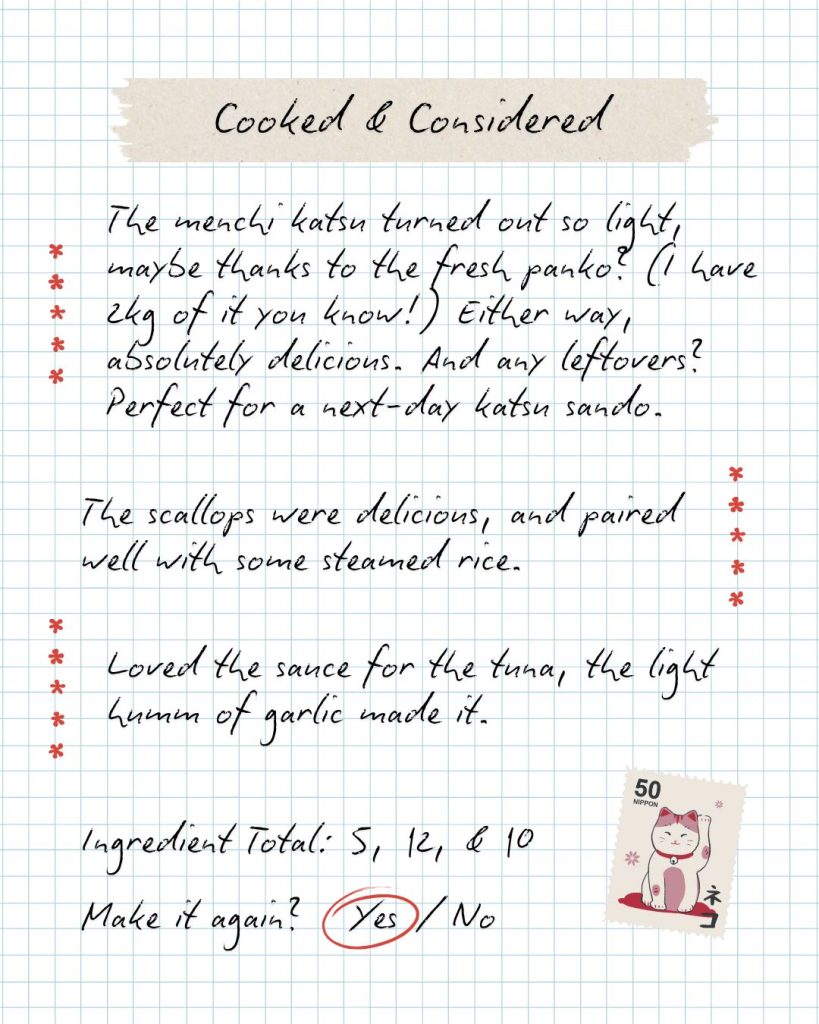 Cooked & Considered
The menchi katsu turned out so light,
maybe thanks to the fresh panko? (I have
2kg of it you know!) Either way,
absolutely delicious. And any leftovers?
Perfect for a next-day katsu sando.
The scallops were delicious, and paired
well with some steamed rice.
Loved the sauce for the tuna, the light
humm of garlic made it.
Ingredient Total: 5, 12, & 10
Make it again? Yes / No
50
NIPPON
ネコ